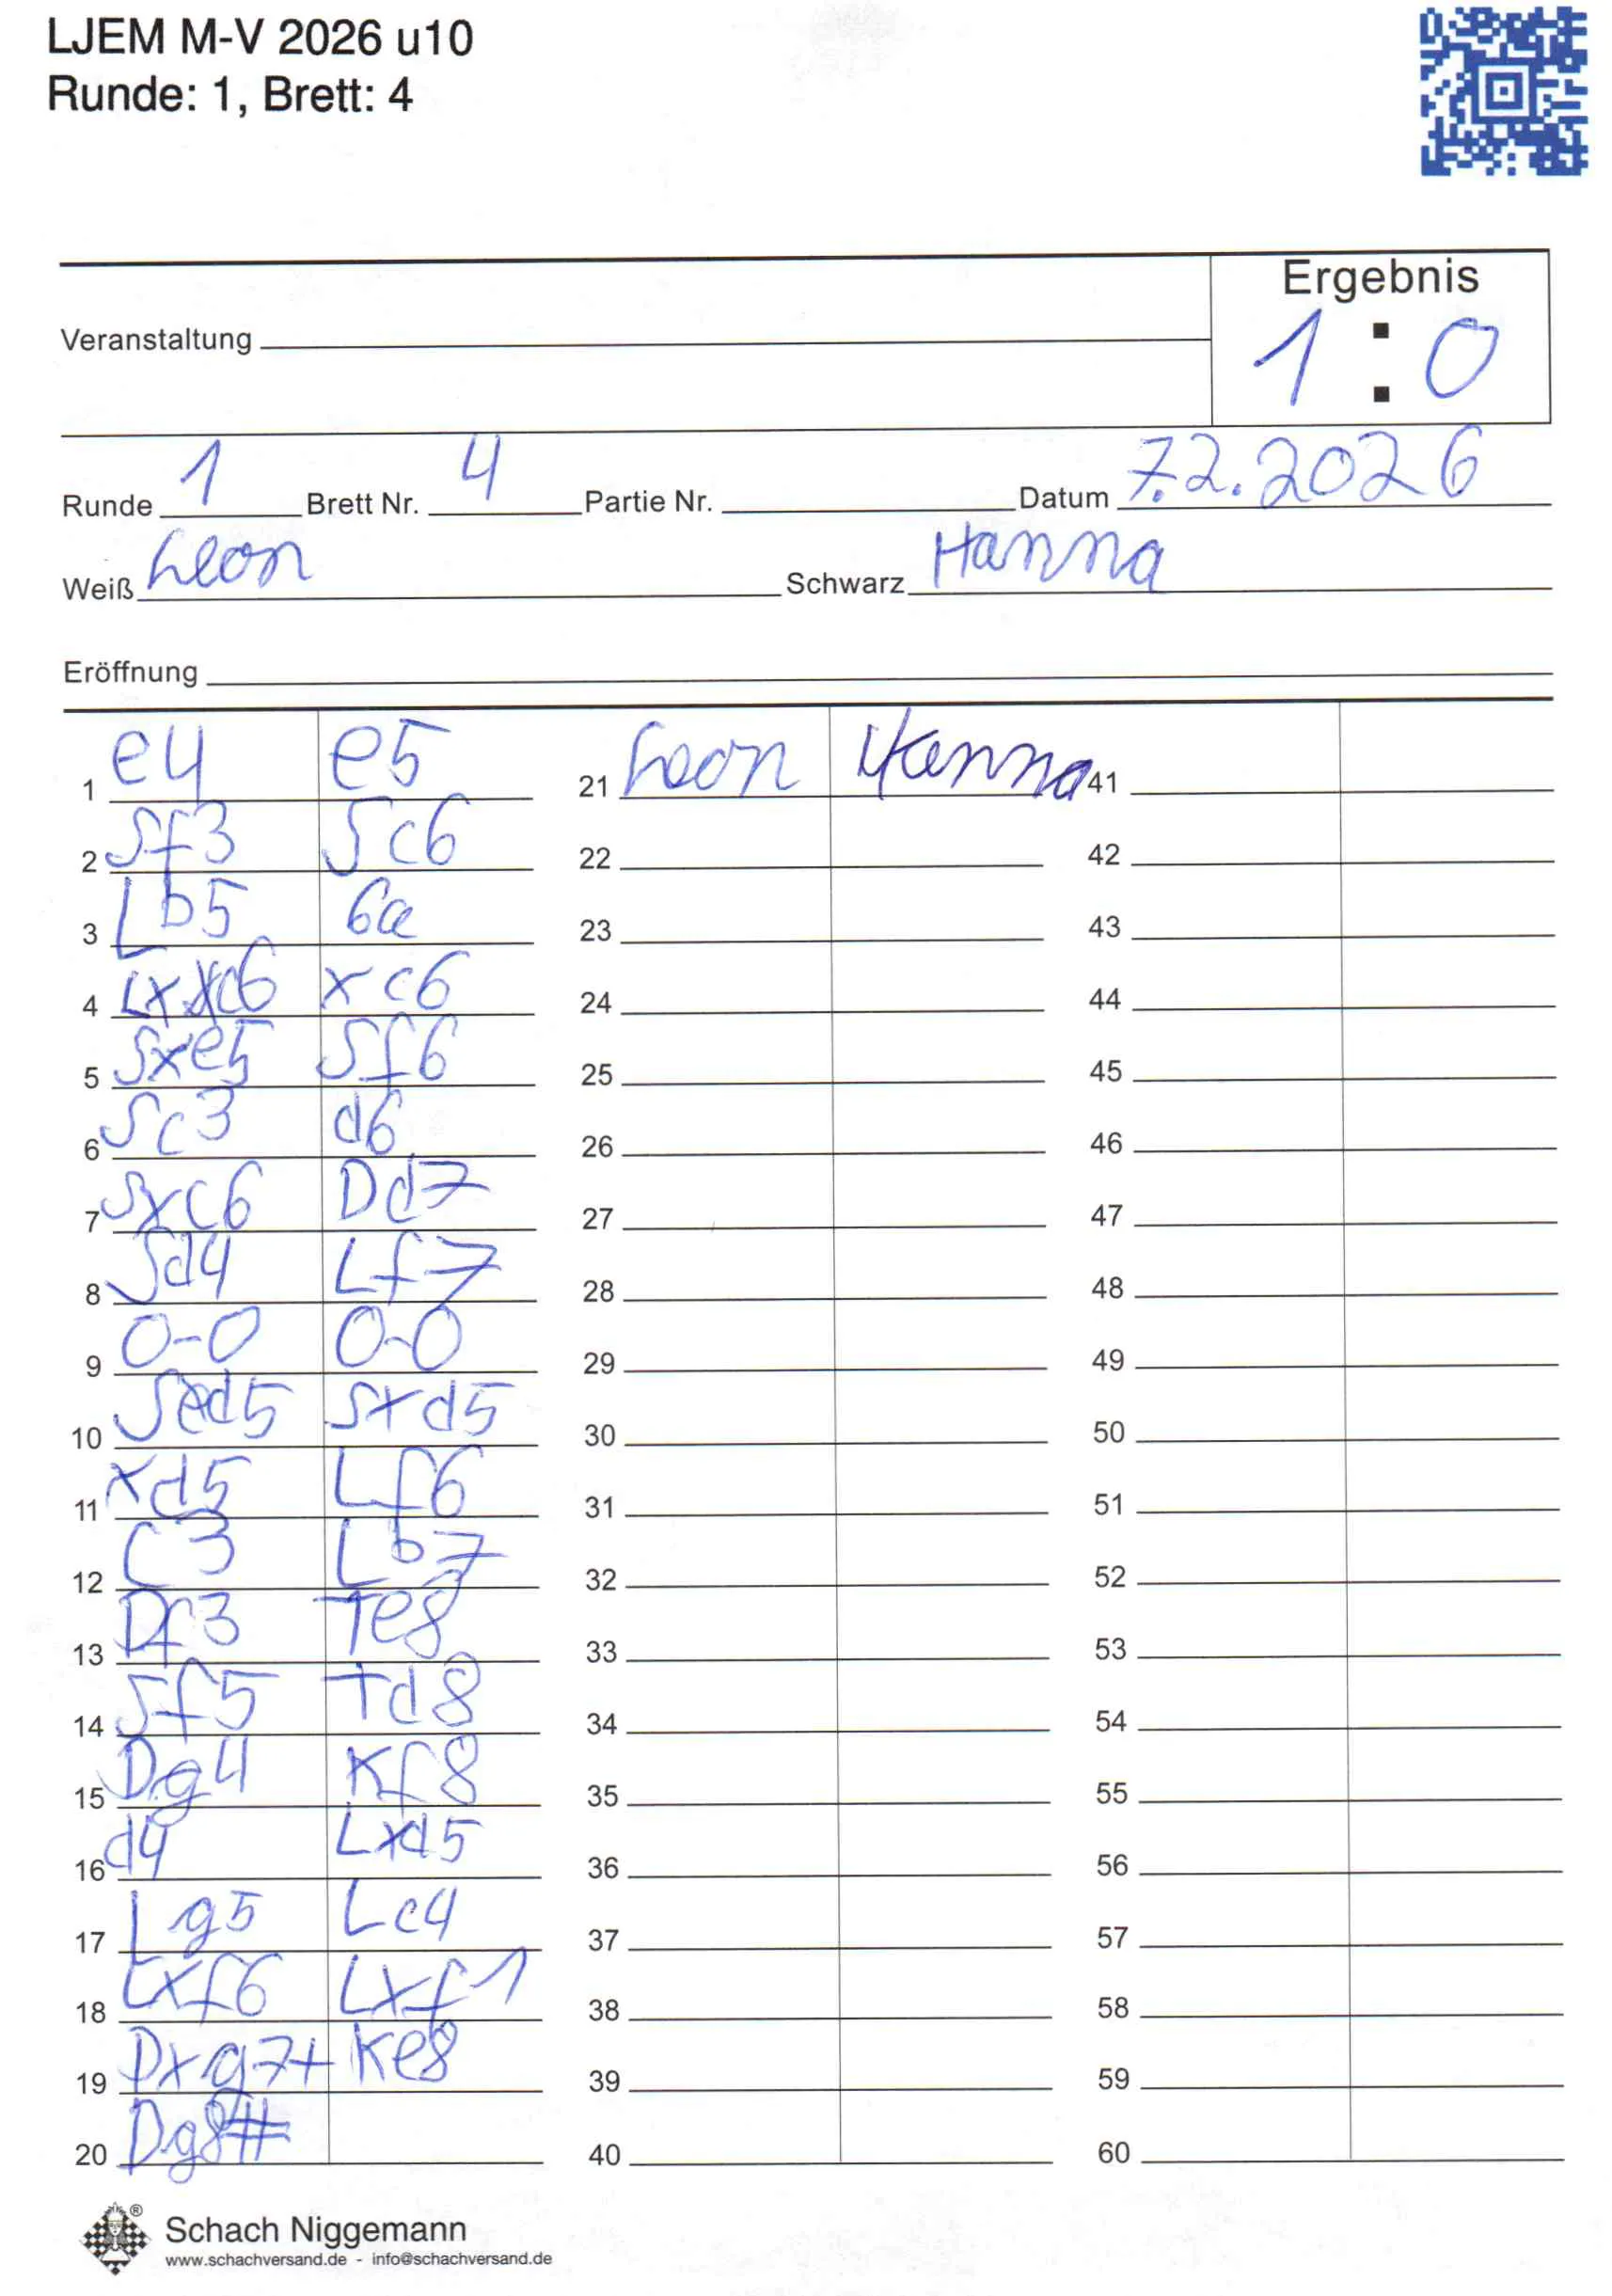 LJEM M-V 2026 u10
Runde: 1, Brett: 4
Ergebnis
Veranstaltung 1 : 0
Runde 1 Brett Nr. 4 Partie Nr. Datum 7.2.2026
Weiß Leon Schwarz Hanna
Eröffnung
1 e4 e5 21 Leon Hanna 41
2 Sf3 Sc6 22 42
3 Lb5 6a 23 43
4 Lxxc6 xc6 24 44
5 Sxe5 Sf6 25 45
6 Sc3 d6 26 46
7 Sxc6 Dd7 27 47
8 Sd4 Lf7 28 48
9 0-0 0-0 29 49
10 Sd5 Sxd5 30 50
11 xd5 Lf6 31 51
12 C3 Lb7 32 52
13 Df3 Te8 33 53
14 Sf5 Td8 34 54
15 Dg4 Kf8 35 55
16 d4 Lxd5 36 56
17 Lg5 Lc4 37 57
18 Lxf6 Lxf1 38 58
19 Dxg7+ Ke8 39 59
20 Dg8# 40 60
Schach Niggemann
www.schachversand.de - info@schachversand.de